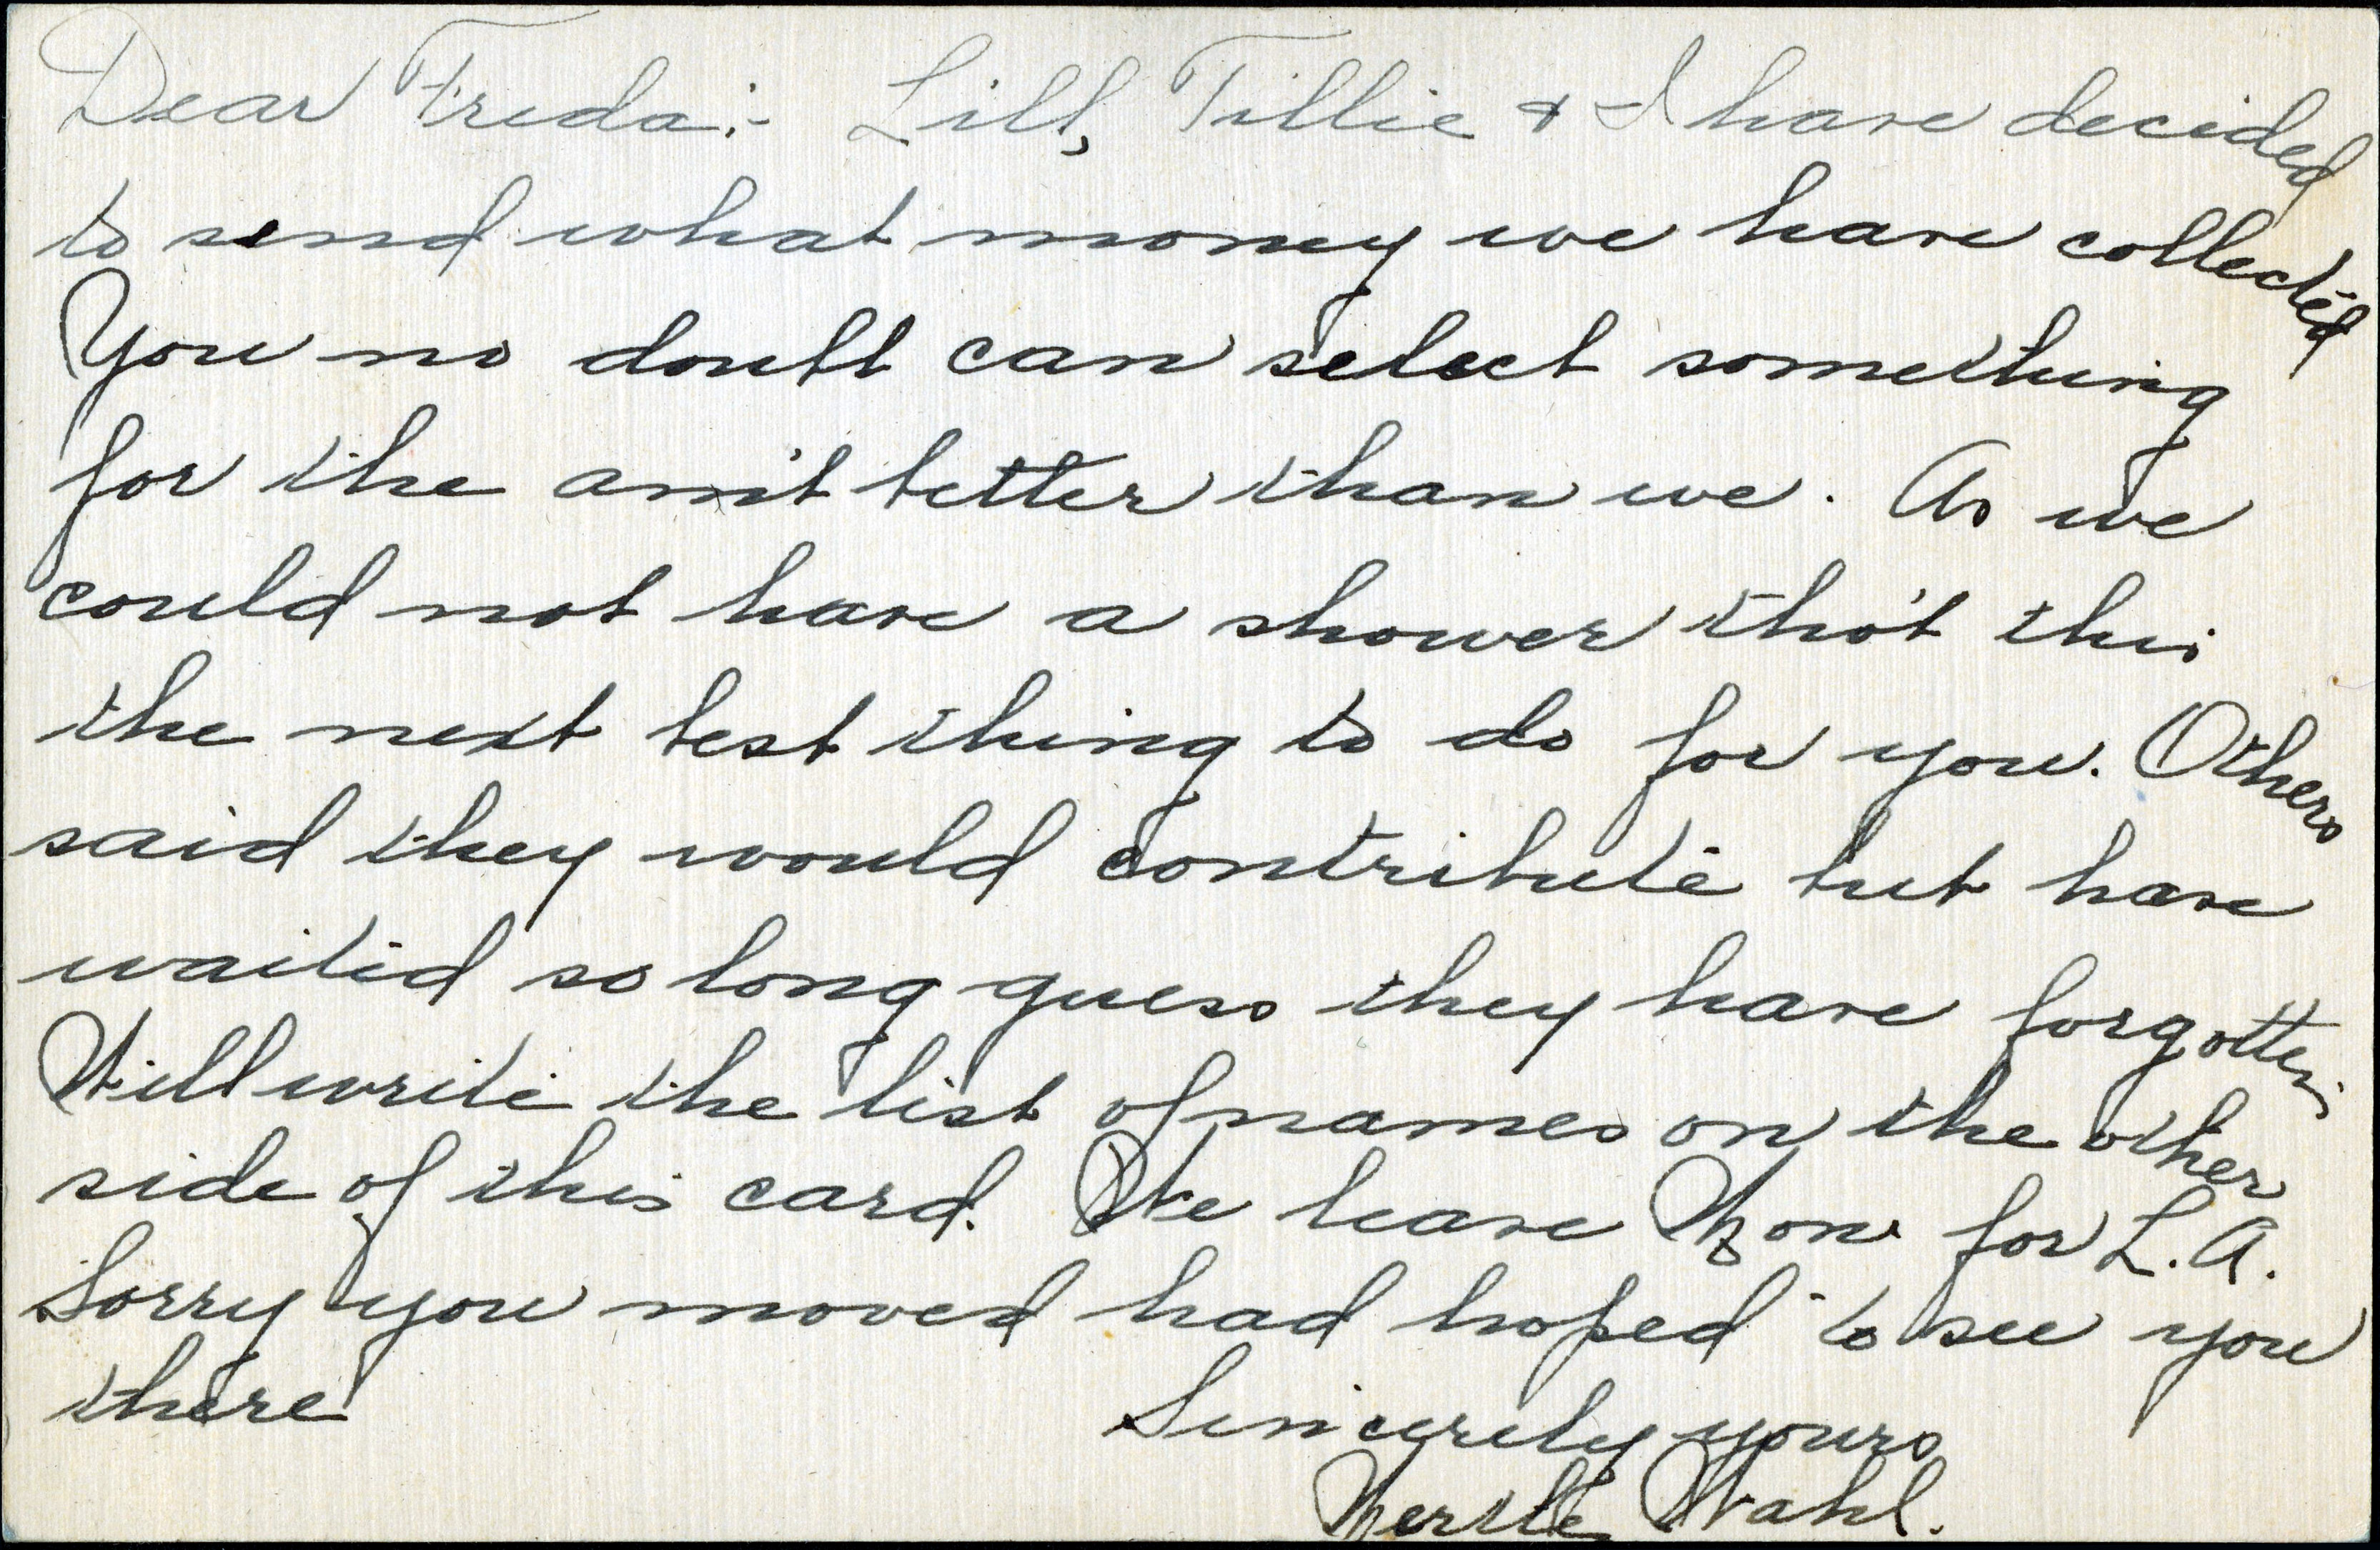 Dear Freda:- Lill, Tillie & I have decided
to send what money we have collected
You no doubt can select something
for the am't better than we. As we
could not have a shower tho't this
the next best thing to do for you. Others
said they would contribute but have
waited so long guess they have forgotten
Will write the list of names on the other
side of this card. We leave Mon for L.A.
Sorry you moved had hoped to see you
there
Sincerely yours
Wahl.